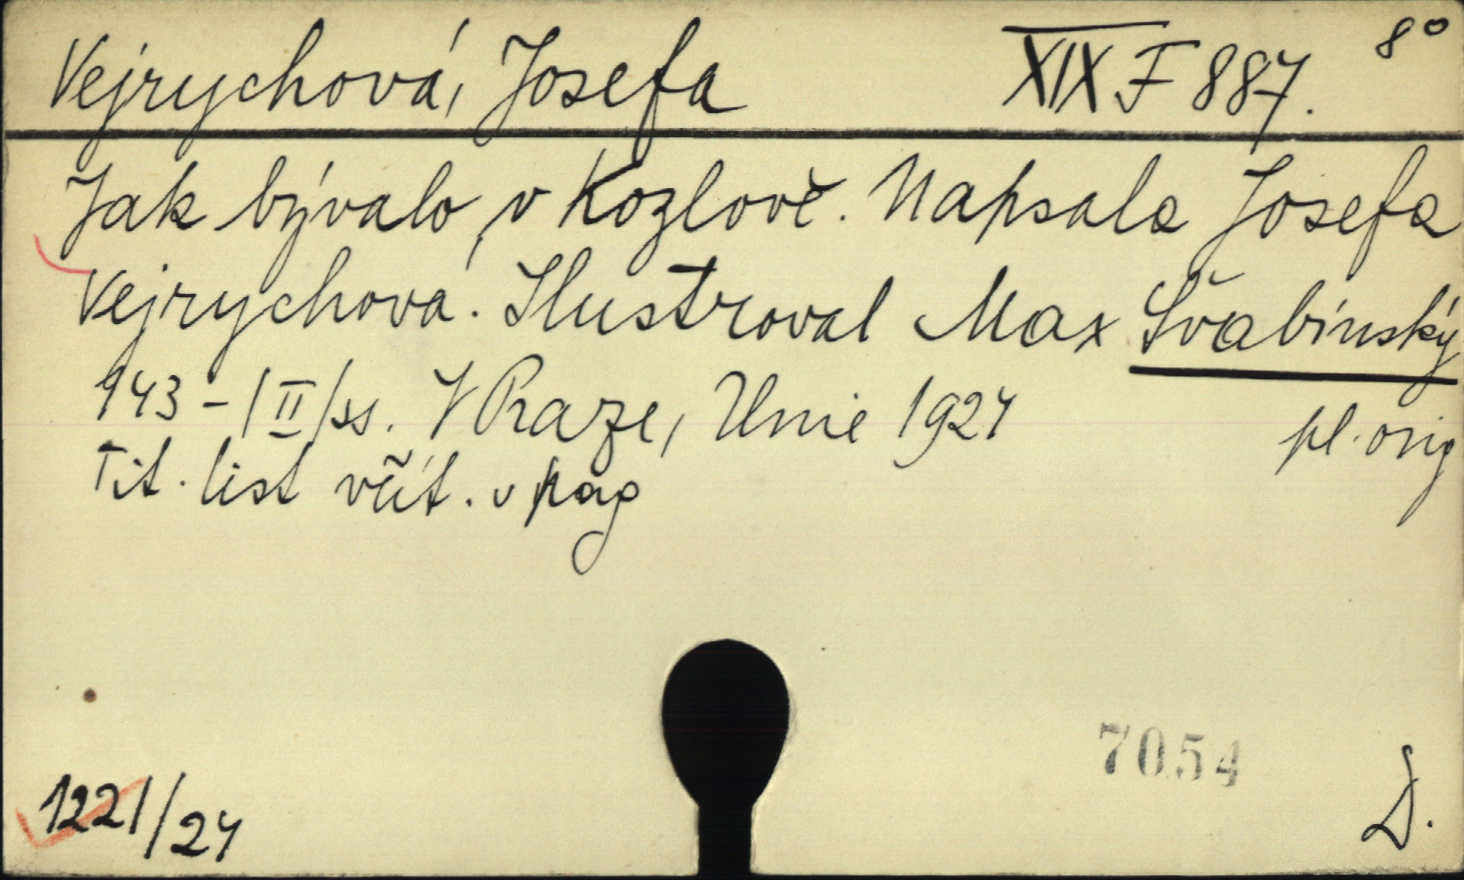 Vejrychová, Josefa XIX F 887. 8°
Jak bývalo v Kozlově. Napsala Josefa
Vejrychová. Ilustroval Max Švabinský
143 - /II/ ss. V Praze, Unie 1924
pl. orig
Tit. list včít. v pag
7054
1221/24
D.